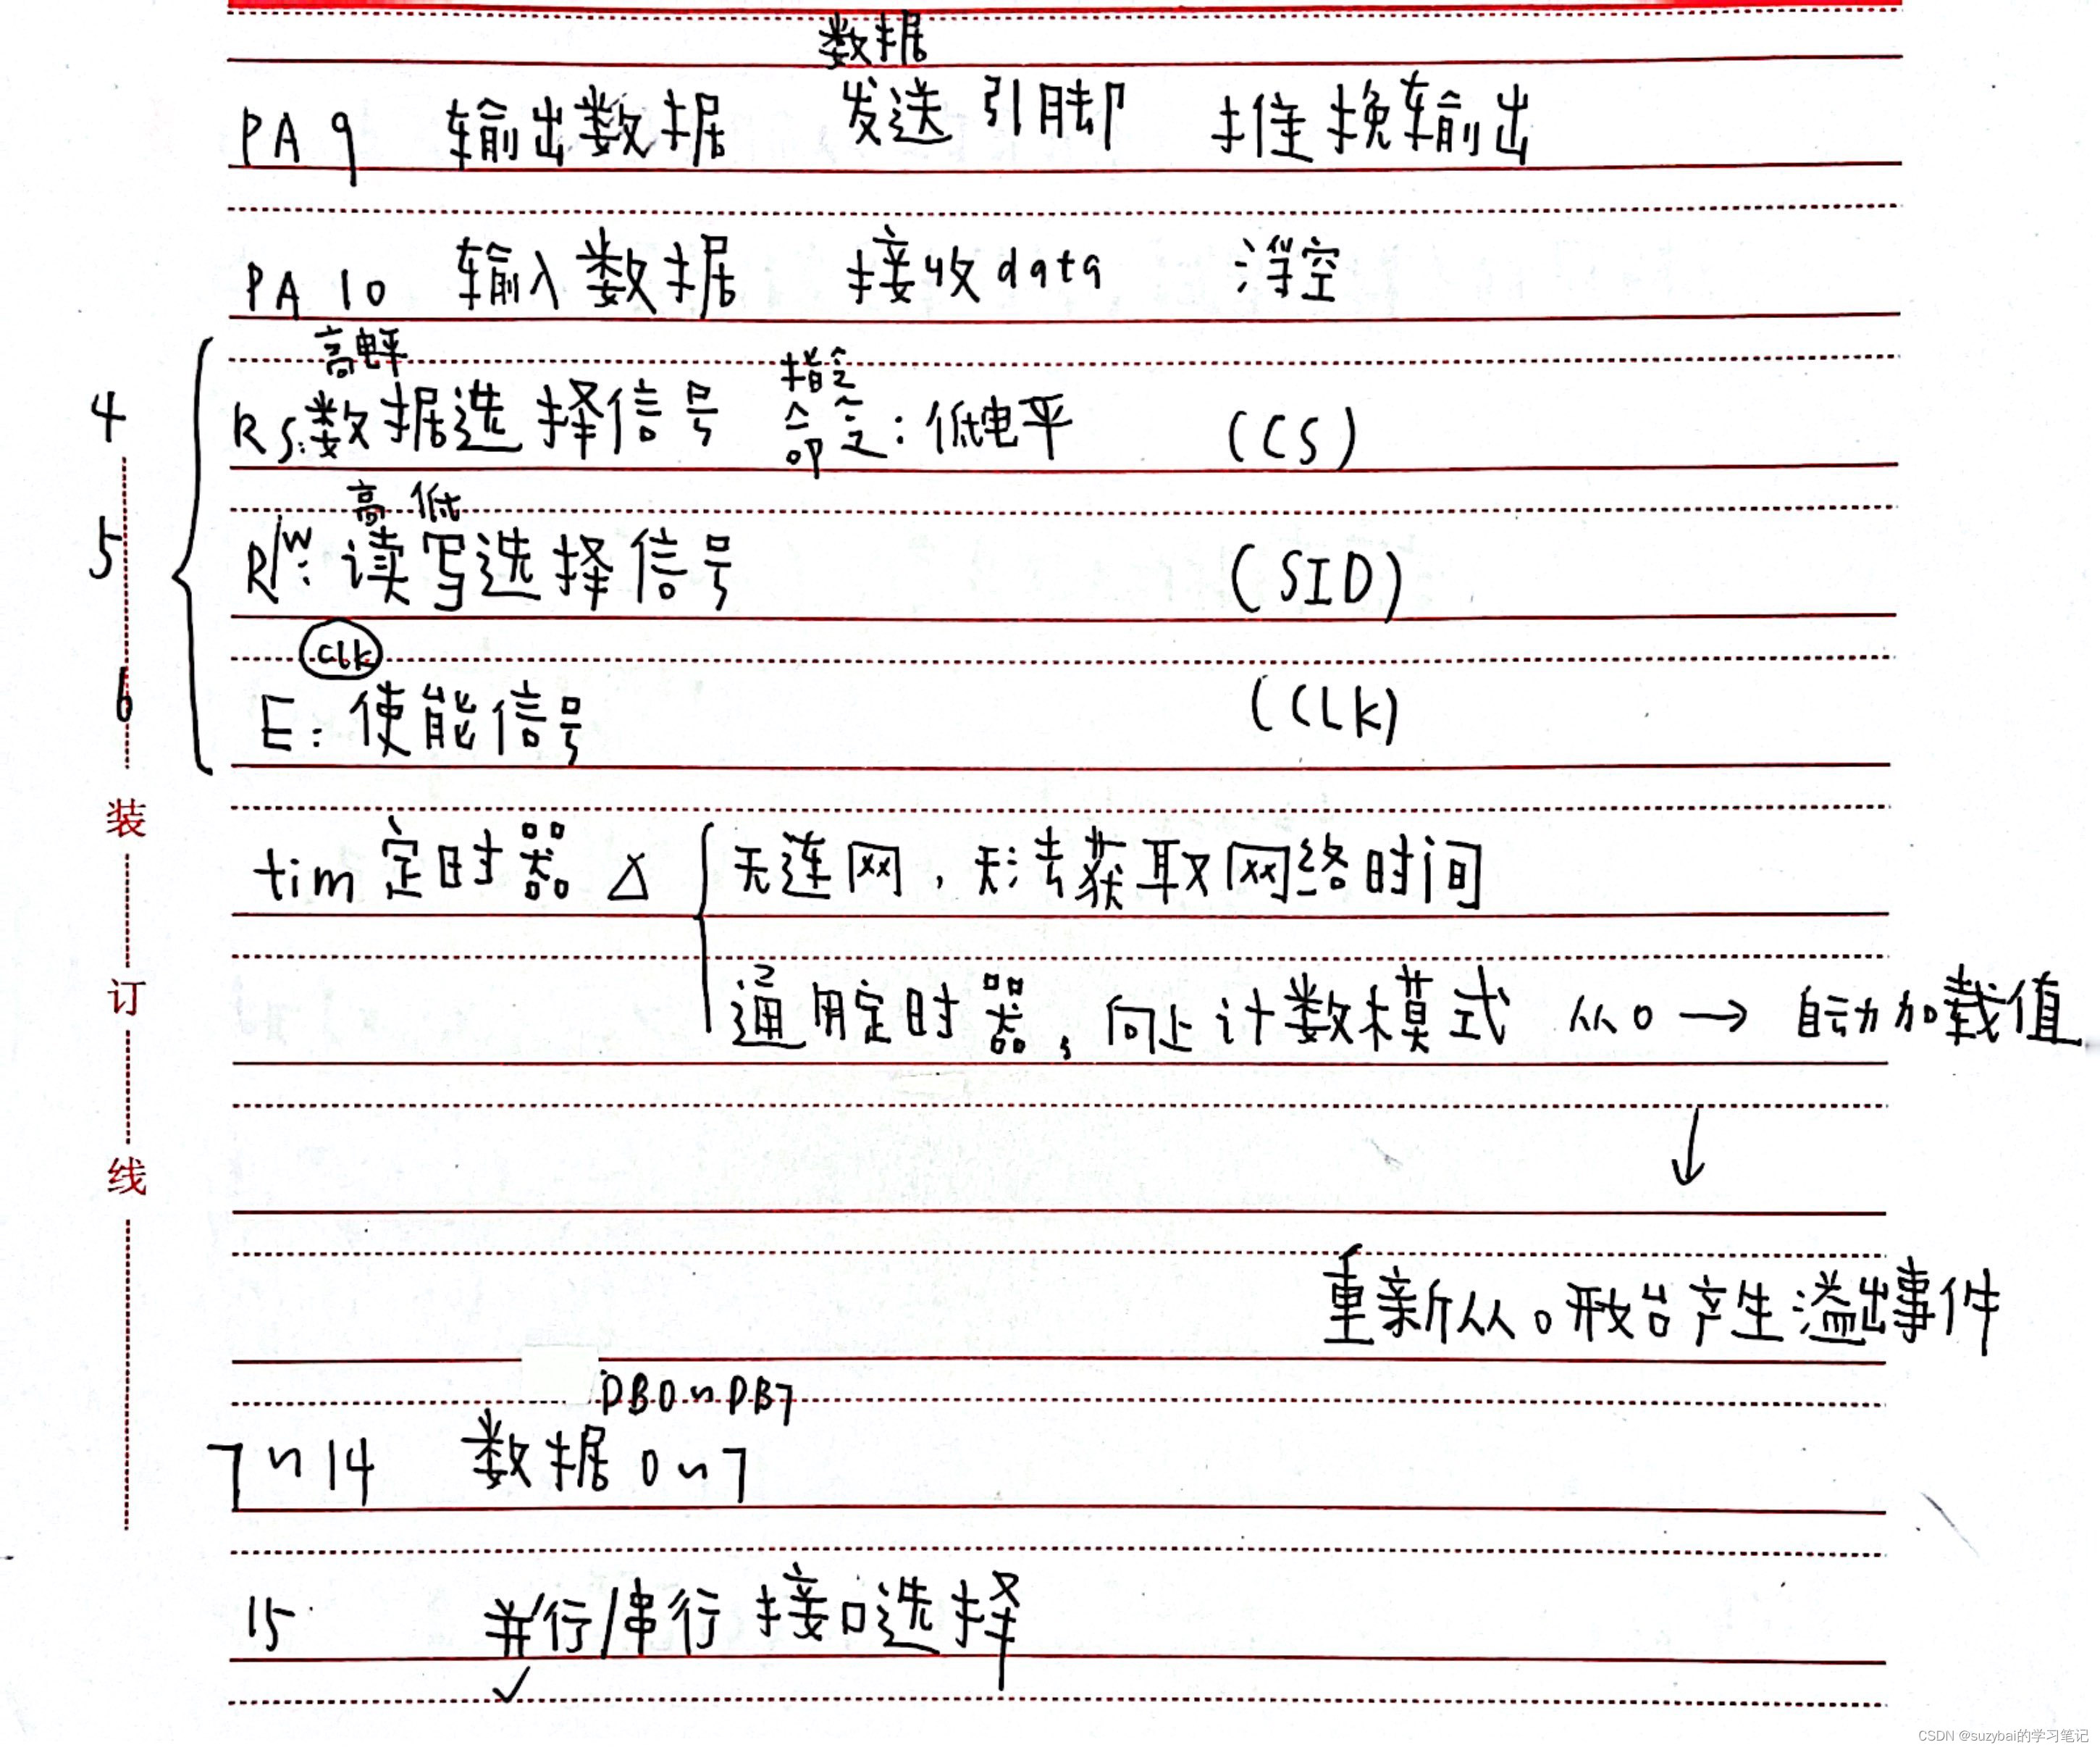 数据
PA9 输出数据 发送引脚 推挽输出
PA10 输入数据 接收data 浮空
高电平 指令
4 RS:数据选择信号 命令:低电平 (CS)
高 低
5 R/W:读写选择信号 (SID)
CLK
6 E:使能信号 (CLK)
装
tim定时器 △ 无连网,无法获取网络时间
订
通用定时器,向上计数模式 从0 → 自动加载值
↓
线
重新从0开始产生溢出事件
DB0~DB7
7~14 数据0~7
15 并行/串行接口选择
✓
CSDN @suzybai的学习笔记